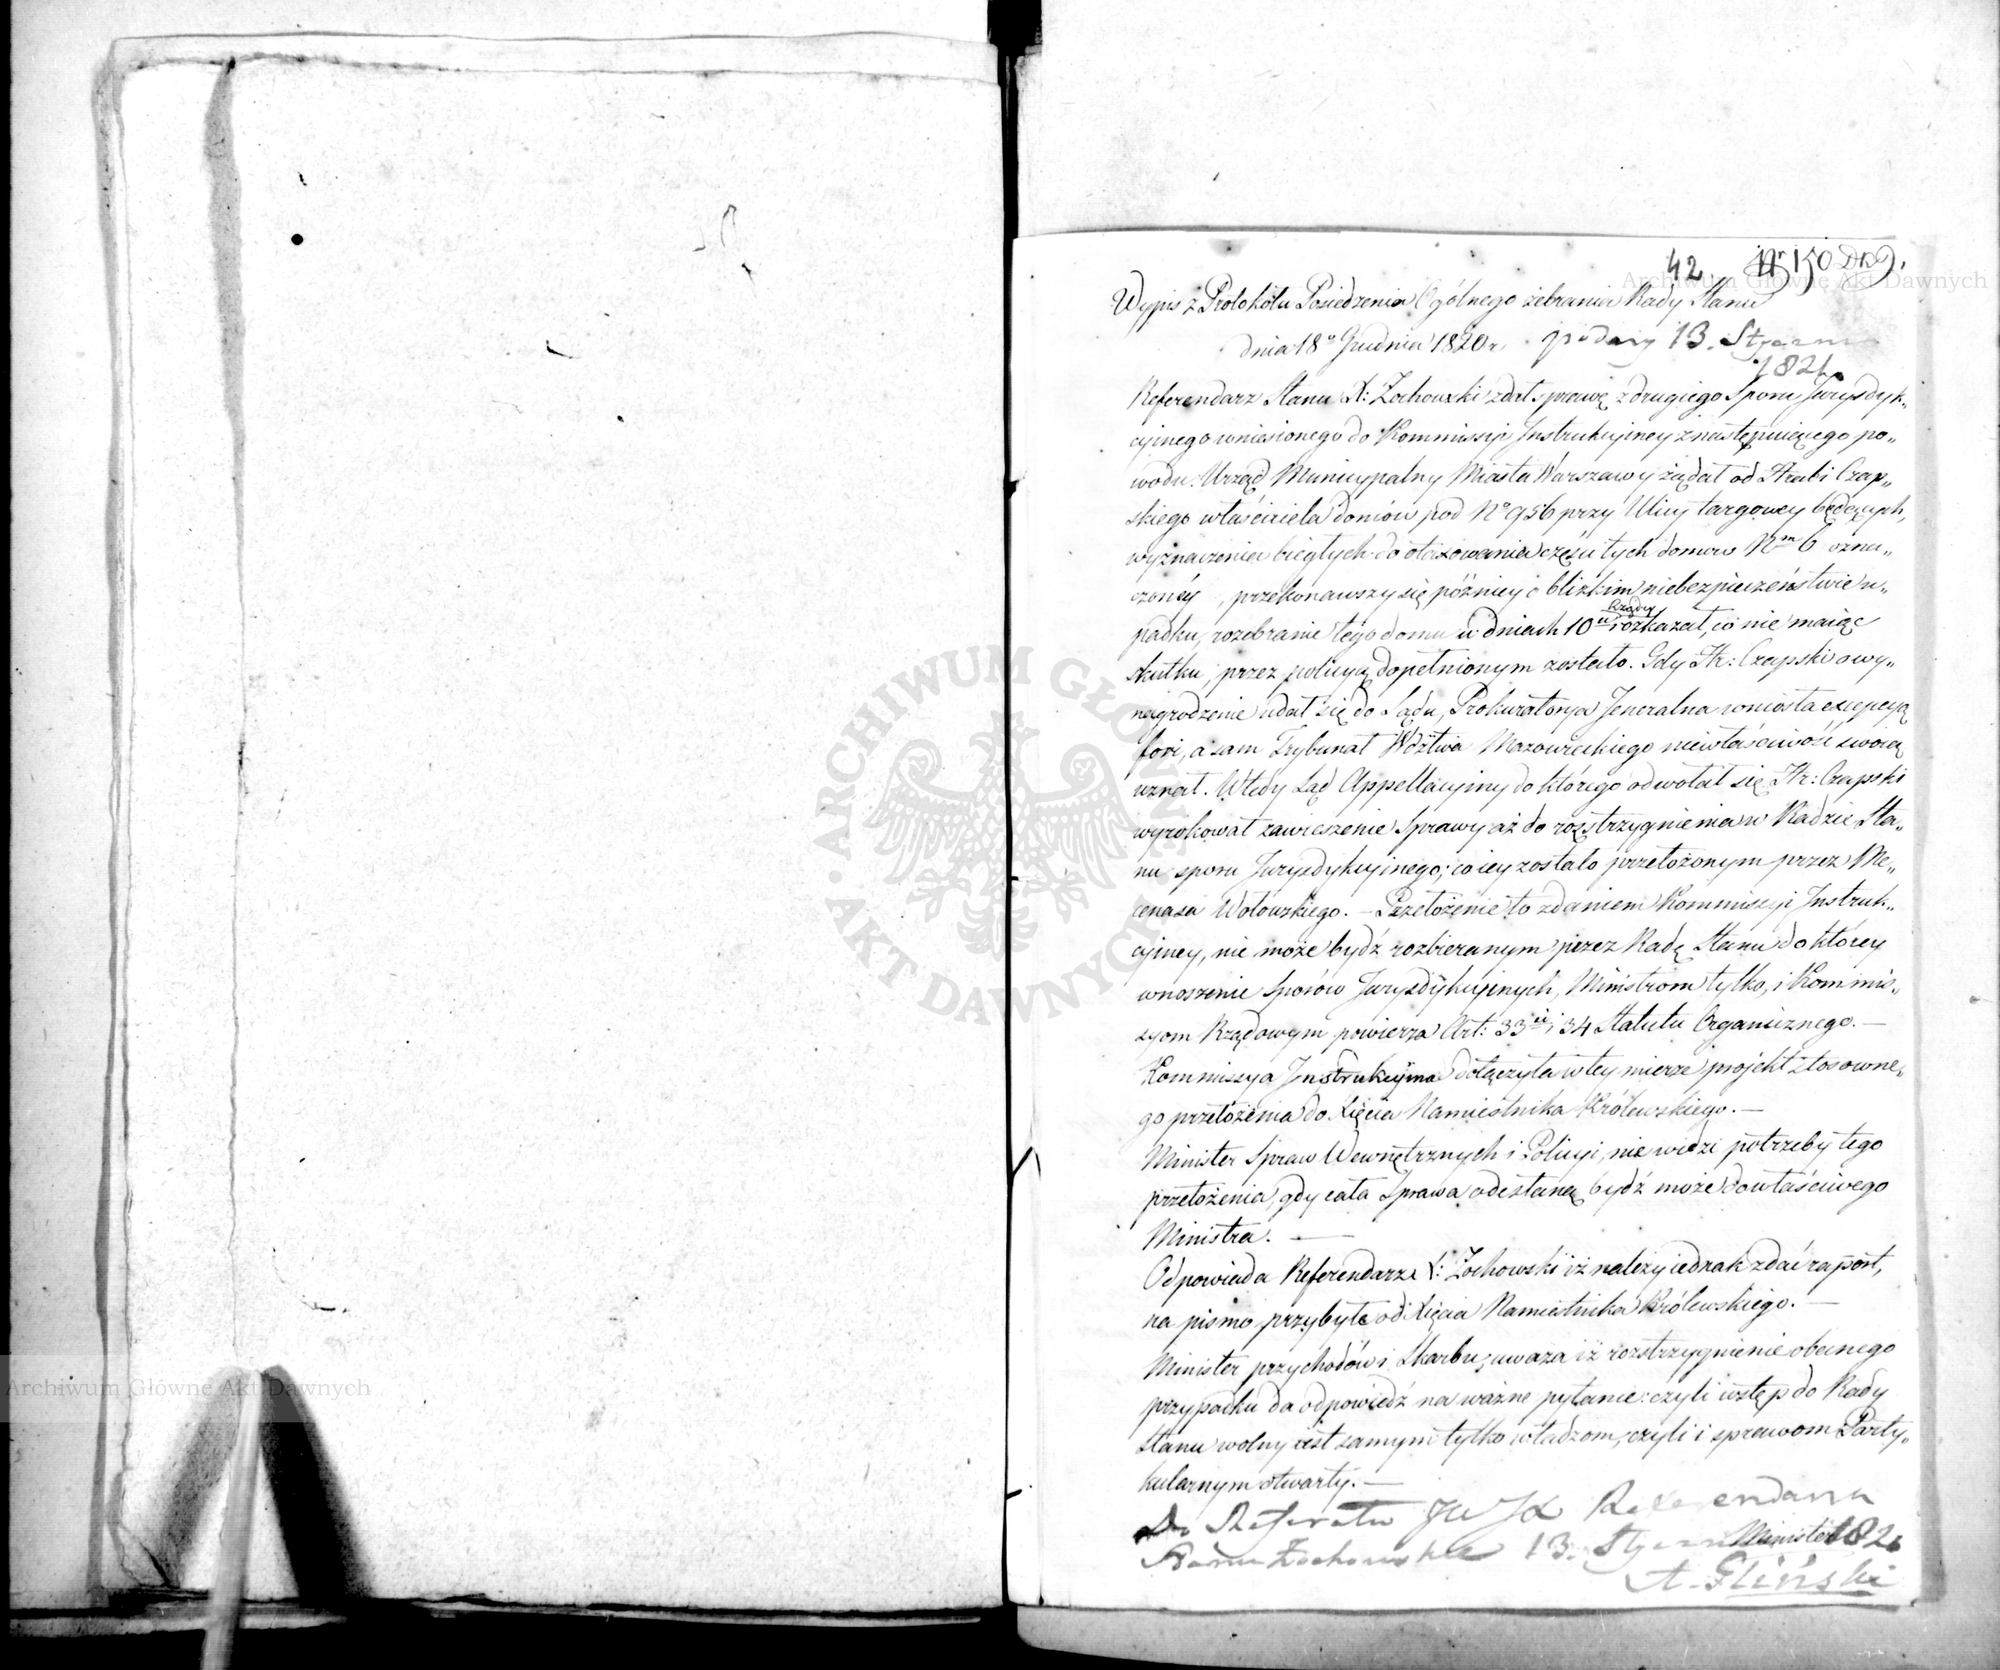 42. Nr 150
Wypis z Protokółu Posiedzenia Ogólnego zebrania Rady Stanu
dnia 18º Grudnia 1820 r. podany 13. Stycznia
1821.
Referendarz Stanu X: Żochowski zdał sprawę z drugiego Sporu Jurysdyk„
cyinego wniesionego do Kommissyi Instrukcyiney z następuiącego po„
wodu. Urząd Municypalny Miasta Warszawy żądał od Hrabi Czap„
skiego właściciela domów pod Nº 956 przy Ulicy targowey będących,
wyznaczenia biegłych do otaxowania części tych domów Nm 6 ozna„
czoney, przekonawszy się późniey o blizkim niebezpieczeństwie u„
padku, rozebranie tego domu w dniach 10u Rządcy rozkazał, co nie maiąc
skutku, przez policyą dopełnionym zostało. Gdy Hr: Czapski o wy„
nagrodzenie udał się do Sądu, Prokuratorya Jeneralna wniosła excepcyą
fori, a sam Trybunał Wdztwa Mazowieckiego niewłaściwość swoią
uznał. Wtedy Sąd Appellacyiny do którego odwołał się Hr: Czapski
wyrokował zawieszenie Sprawy aż do rozstrzygnienia w Radzie Sta„
nu sporu Jurysdykcyinego; co iey zostało przełożonym przez Me„
cenasa Wołowskiego. – Przełożenie to zdaniem Kommissyi Instruk„
cyiney, nie może bydź rozbieranym przez Radę Stanu do którey
wnoszenie Sporów Jurysdykcyinych, Ministrom tylko, i Kommis„
syom Rządowym powierza Art: 33 i 34 Statutu Organicznego. —
Kommissya Instrukcyina dołączyła w tey mierze projekt stosowne„
go przełożenia do Xięcia Namiestnika Królewskiego. —
Minister Spraw Wewnętrznych i Policyi, nie widzi potrzeby tego
przełożenia, gdy cała Sprawa odesłaną bydź może do właściwego
Ministra. —
Odpowiada Referendarz X: Żochowski iż należy iednak zdać raport,
na pismo przybyłe od Xięcia Namiestnika Królewskiego. —
Minister przychodów i Skarbu, uważa iż rozstrzygnienie obecnego
przypadku da odpowiedź na ważne pytanie: czyli wstęp do Rady
Stanu wolny iest samym tylko władzom, czyli i sprawom Party„
kularnym otwarty. —
Do Referatu JW JX Referendarza
Stanu Żochowskiego 13. Stycznia 1821
Minister
A. Gliński
ARCHIWUM GŁÓWNE AKT DAWNYCH
Archiwum Główne Akt Dawnych
Archiwum Główne Akt Dawnych